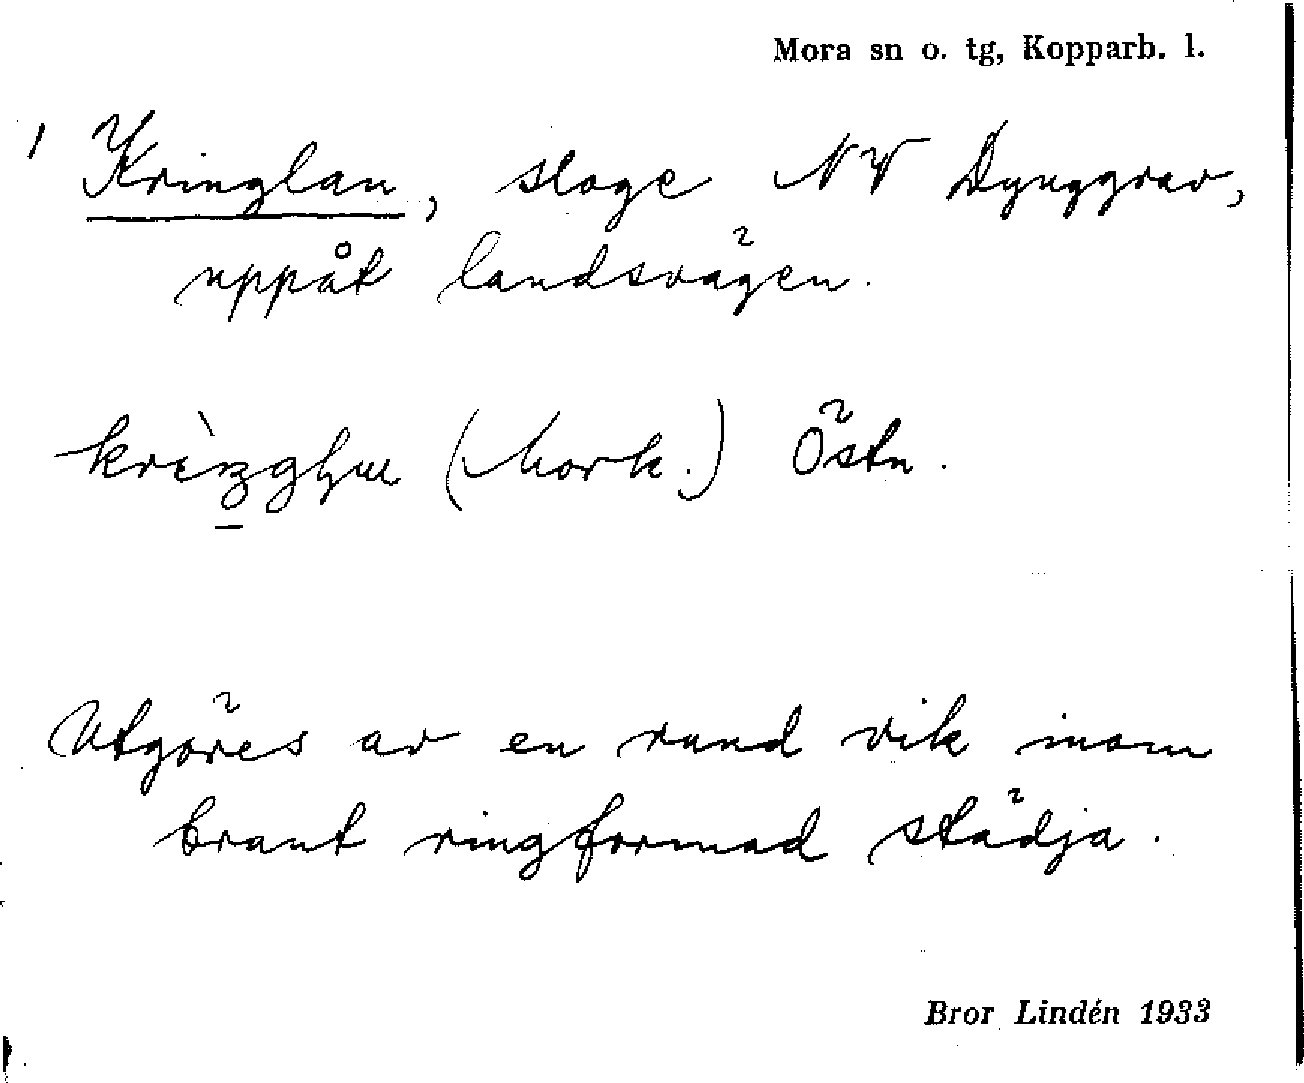 Mora sn o. tg, Kopparb. l.
1 Kringlan, sloge NV Dynggrav,
uppåt landsvägen.
(Mork.) Östn.
Utgöres av en rund vik inom
brant ringformad städja.
Bror Lindén 1933